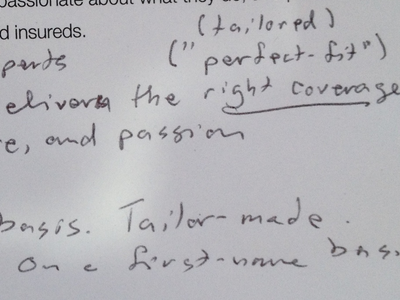 passionate about what they do,
d insureds.
(tailored)
perts ("perfect-fit")
eliver the right coverage
e, and passion
basis. Tailor-made.
on a first-name basi